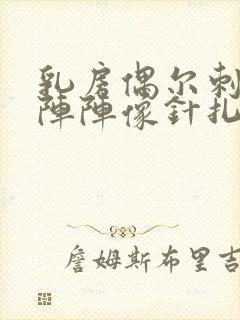 乳房偶尔刺
陣陣像針扎
詹姆斯布里吉